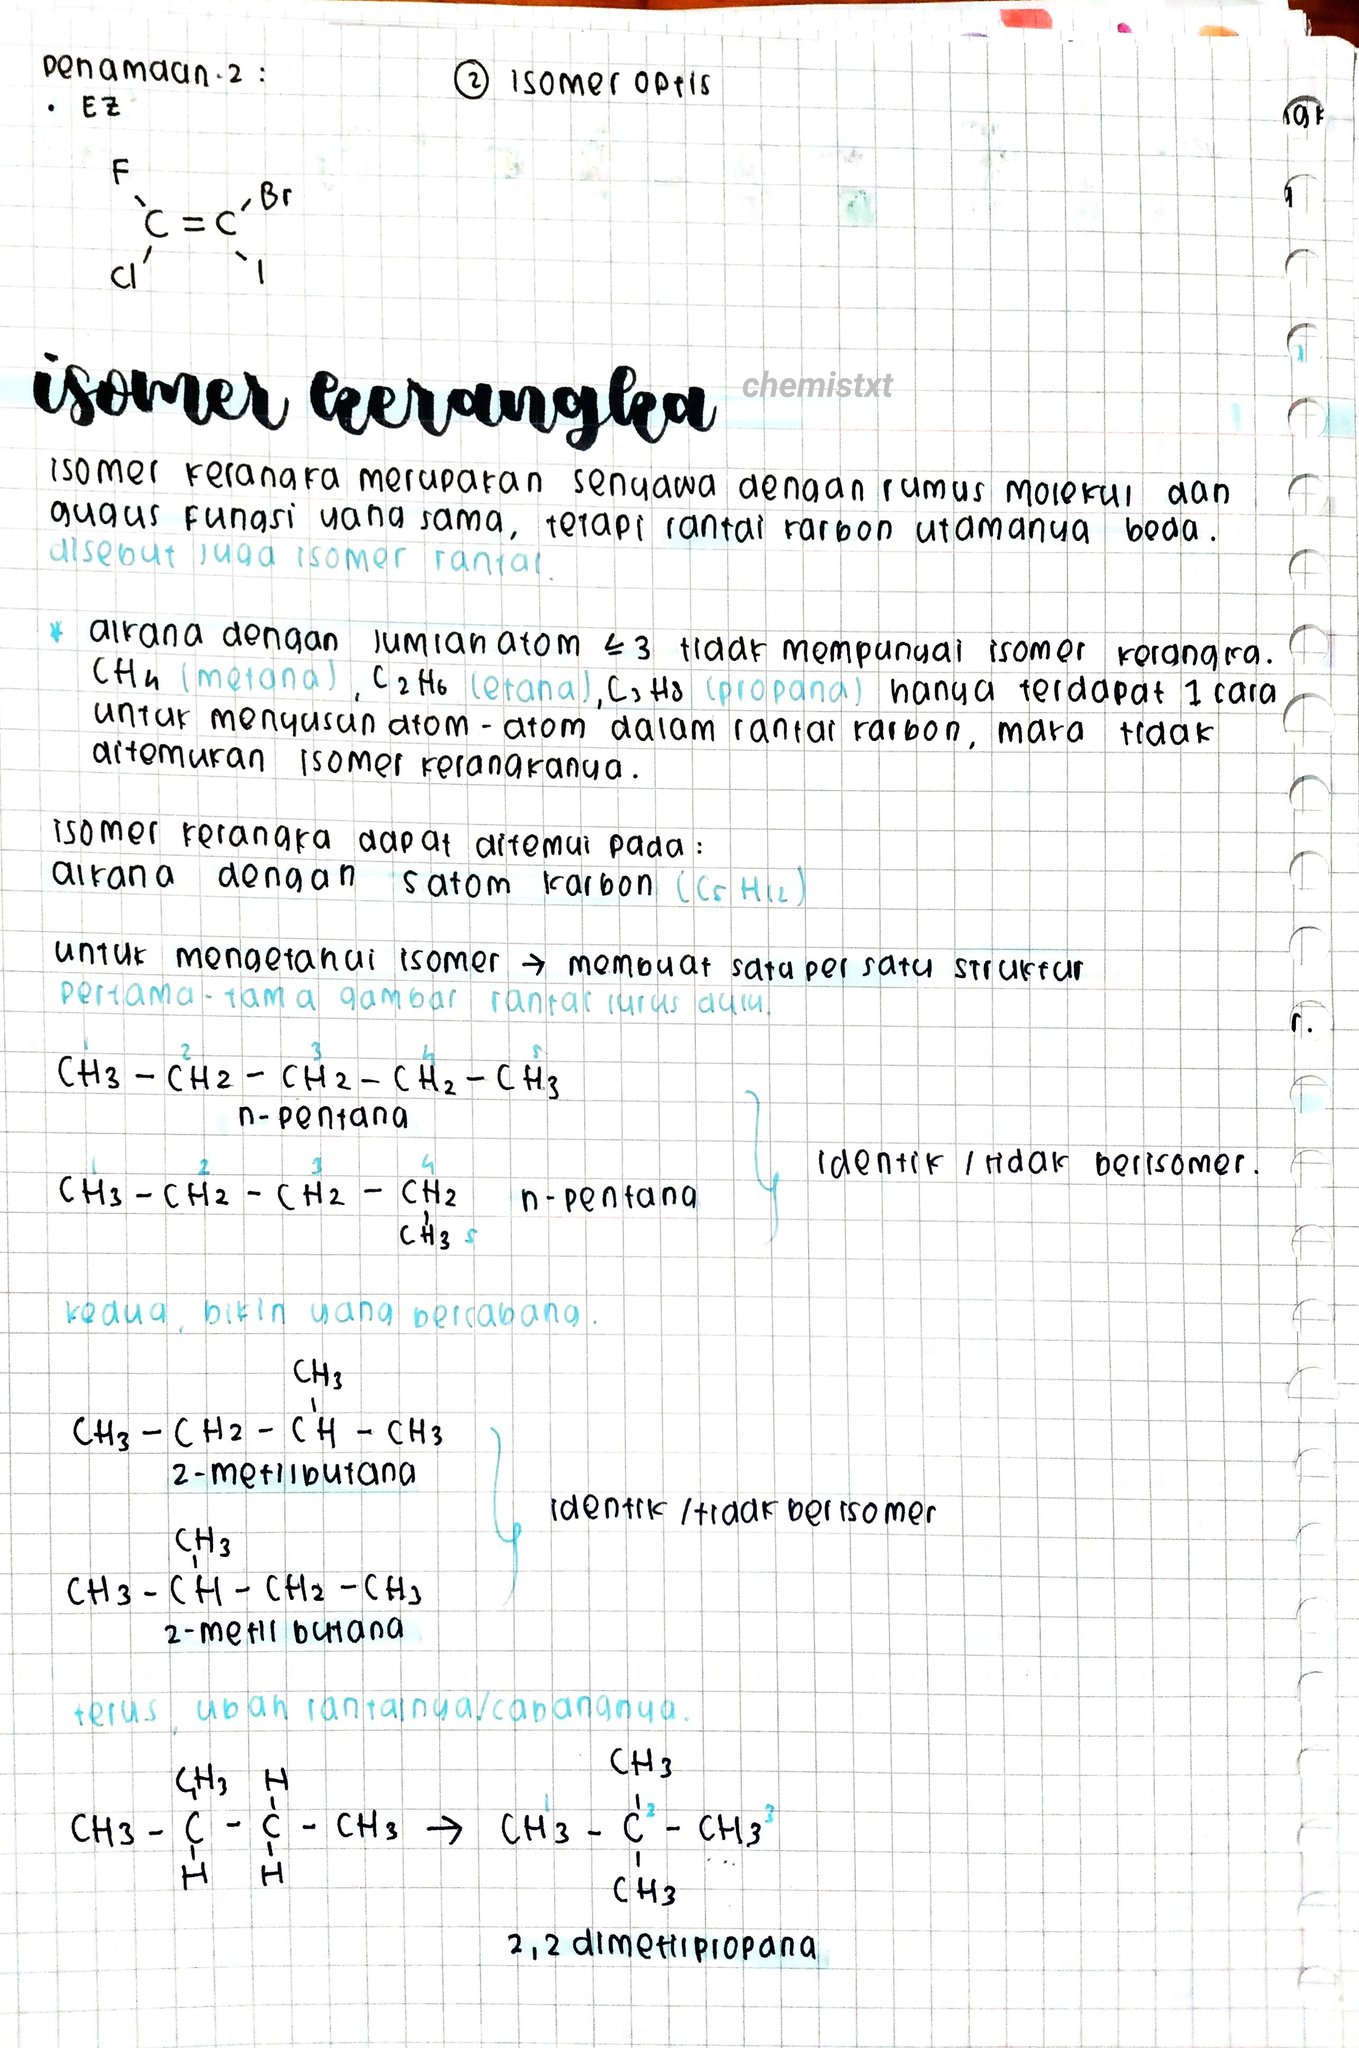 penamaan-2 :
• EZ
② isomer optis
F
Br
C = C
Cl
I
isomer kerangka
chemistxt
isomer kerangka merupakan senyawa dengan rumus molekul dan
gugus fungsi yang sama, tetapi rantai karbon utamanya beda.
disebut juga isomer rantai.
* alkana dengan jumlah atom ≤ 3 tidak mempunyai isomer kerangka.
CH4 (metana), C2H6 (etana), C3H8 (propana) hanya terdapat 1 cara
untuk menyusun atom-atom dalam rantai karbon, maka tidak
ditemukan isomer kerangkanya.
isomer kerangka dapat ditemui pada :
alkana dengan 5 atom karbon (C5H12)
untuk mengetahui isomer → membuat satu per satu struktur
pertama-tama gambar rantai lurus dulu.
1 2 3 4 5
CH3 - CH2 - CH2 - CH2 - CH3
n-pentana
identik / tidak berisomer.
1 2 3 4
CH3 - CH2 - CH2 - CH2 n-pentana
CH3 5
kedua, bikin yang bercabang.
CH3
CH3 - CH2 - CH - CH3
2-metilbutana
identik /tidak berisomer
CH3
CH3 - CH - CH2 - CH3
2-metil butana
terus, ubah rantainya/cabangnya.
CH3 H
CH3 - C - C - CH3 →
H H
CH3
1 2 3
CH3 - C - CH3
CH3
2,2 dimetilpropana